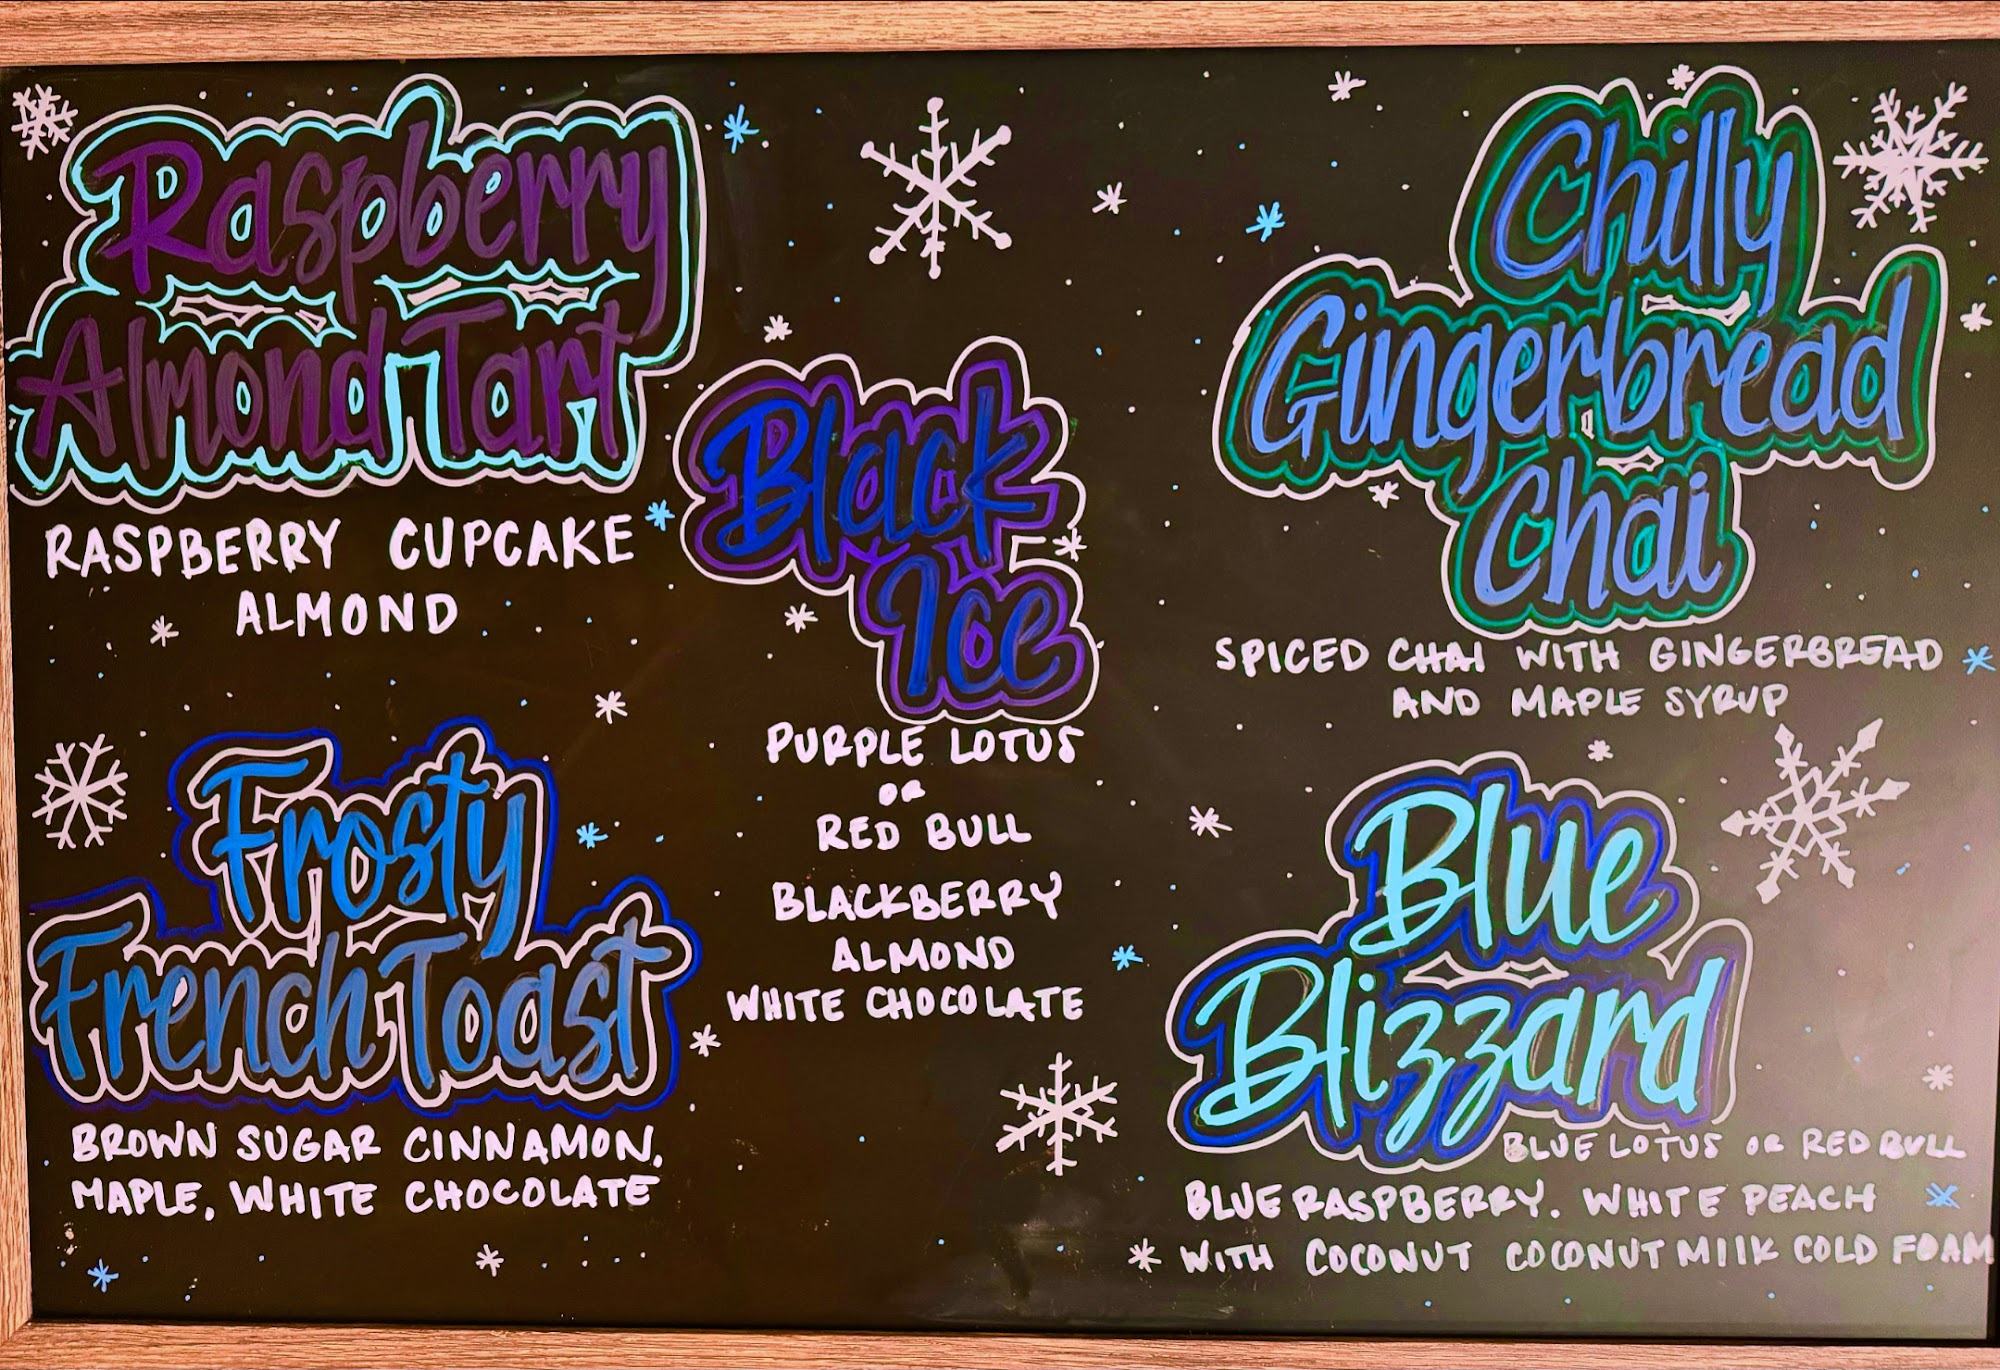 Raspberry
Almond Tart
RASPBERRY CUPCAKE
ALMOND
Frosty
French Toast
BROWN SUGAR CINNAMON,
MAPLE, WHITE CHOCOLATE
Black
Ice
PURPLE LOTUS
OR
RED BULL
BLACKBERRY
ALMOND
WHITE CHOCOLATE
Chilly
Gingerbread
Chai
SPICED CHAI WITH GINGERBREAD
AND MAPLE SYRUP
Blue
Blizzard
BLUE LOTUS OR RED BULL
BLUE RASPBERRY. WHITE PEACH
WITH COCONUT COCONUT MILK COLD FOAM